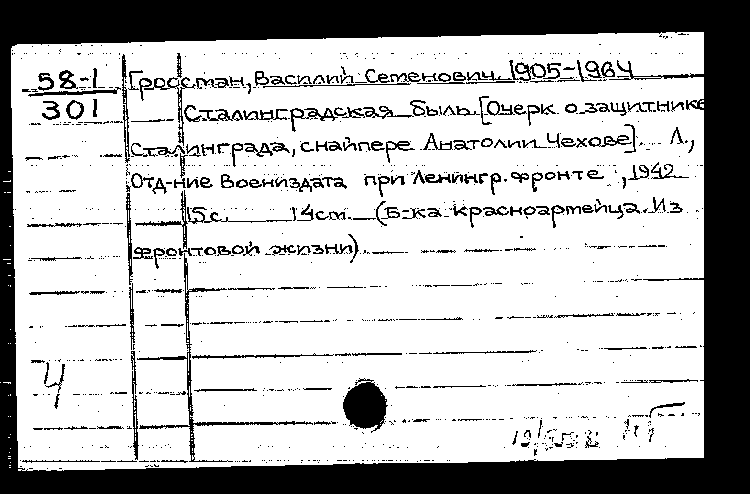 58-1
301
Гроссман, Василий Семенович. 1905-1964
Сталинградская быль. [Очерк о защитнике
Сталинграда, снайпере Анатолии Чехове]. Л.,
Отд-ние Воениздата при Ленингр. фронте, 1942
15 с. 14 см. (Б-ка красноармейца. Из
фронтовой жизни).
Ч